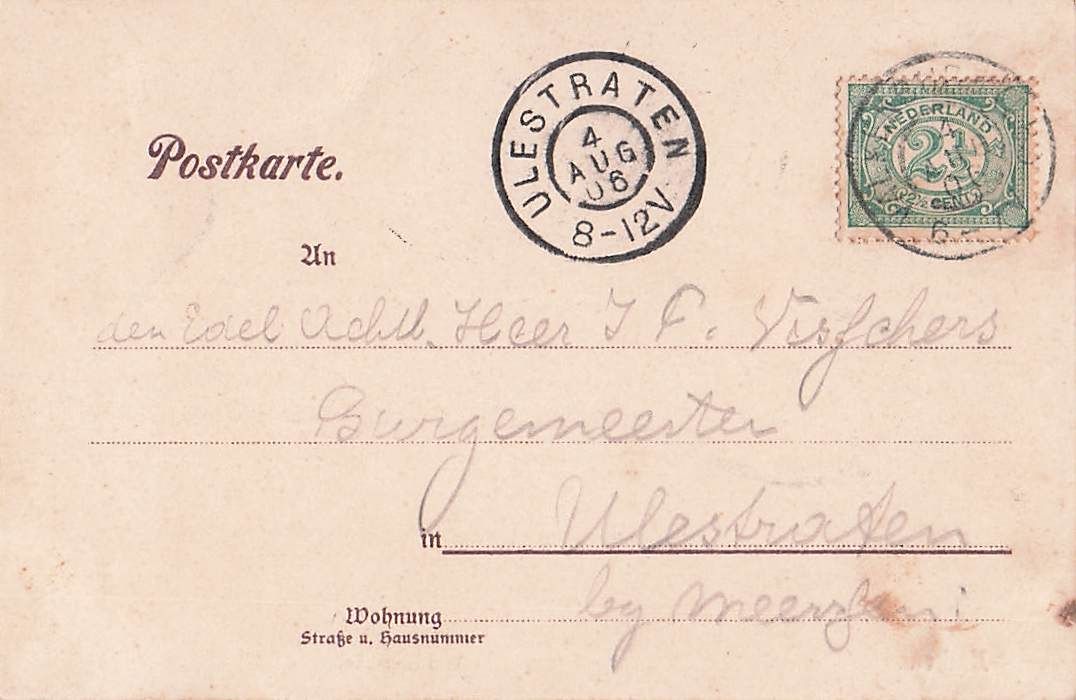 ULESTRATEN
4
AUG
06
8-12V
NEDERLAND
2½
2½ CENT
Postkarte.
An
den Edel Achtb. Heer J F. Visschers
Burgemeester
in Ulestraten
by
Wohnung
Straße u. Hausnummer